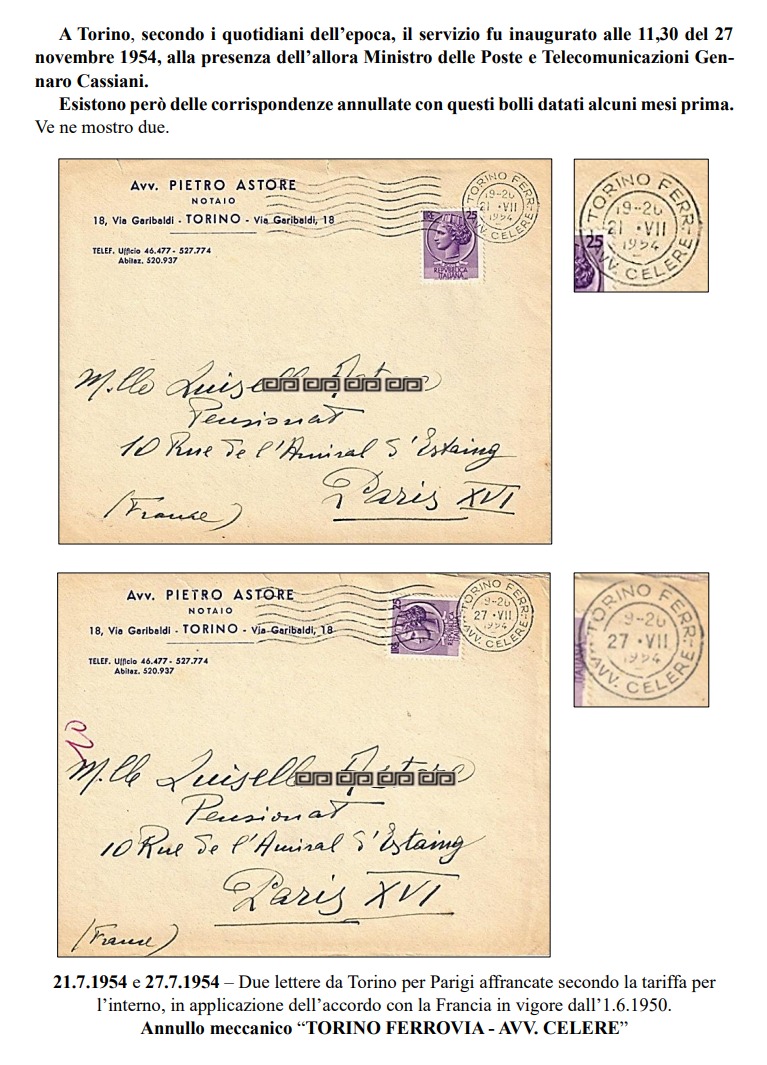 A Torino, secondo i quotidiani dell’epoca, il servizio fu inaugurato alle 11,30 del 27
novembre 1954, alla presenza dell’allora Ministro delle Poste e Telecomunicazioni Gen-
naro Cassiani.
Esistono però delle corrispondenze annullate con questi bolli datati alcuni mesi prima.
Ve ne mostro due.
Avv. PIETRO ASTORE
NOTAIO
18, Via Garibaldi - TORINO - Via Garibaldi, 18
TELEF. Ufficio 46.477 - 527.774
Abitaz. 520.937
TORINO FERR.
19-20
21 •VII
1954
AVV. CELERE
25
REPVBBLICA
ITALIANA
TORINO FERR.
19-20
21 •VII
1954
AVV. CELERE
25
M.lle
Pensionat
10 Rue de l'Amiral d'Estaing
Paris XVI
(France)
Avv. PIETRO ASTORE
NOTAIO
18, Via Garibaldi - TORINO - Via Garibaldi, 18
TELEF. Ufficio 46.477 - 527.774
Abitaz. 520.937
25
TORINO FERR.
9-20
27 •VII
1954
AVV. CELERE
TORINO FERR.
9-20
27 •VII
1954
AVV. CELERE
M.lle Luisella
Pensionat
10 Rue de l'Amiral d'Estaing
Paris XVI
(France)
21.7.1954 e 27.7.1954 – Due lettere da Torino per Parigi affrancate secondo la tariffa per
l’interno, in applicazione dell’accordo con la Francia in vigore dall’1.6.1950.
Annullo meccanico “TORINO FERROVIA - AVV. CELERE”